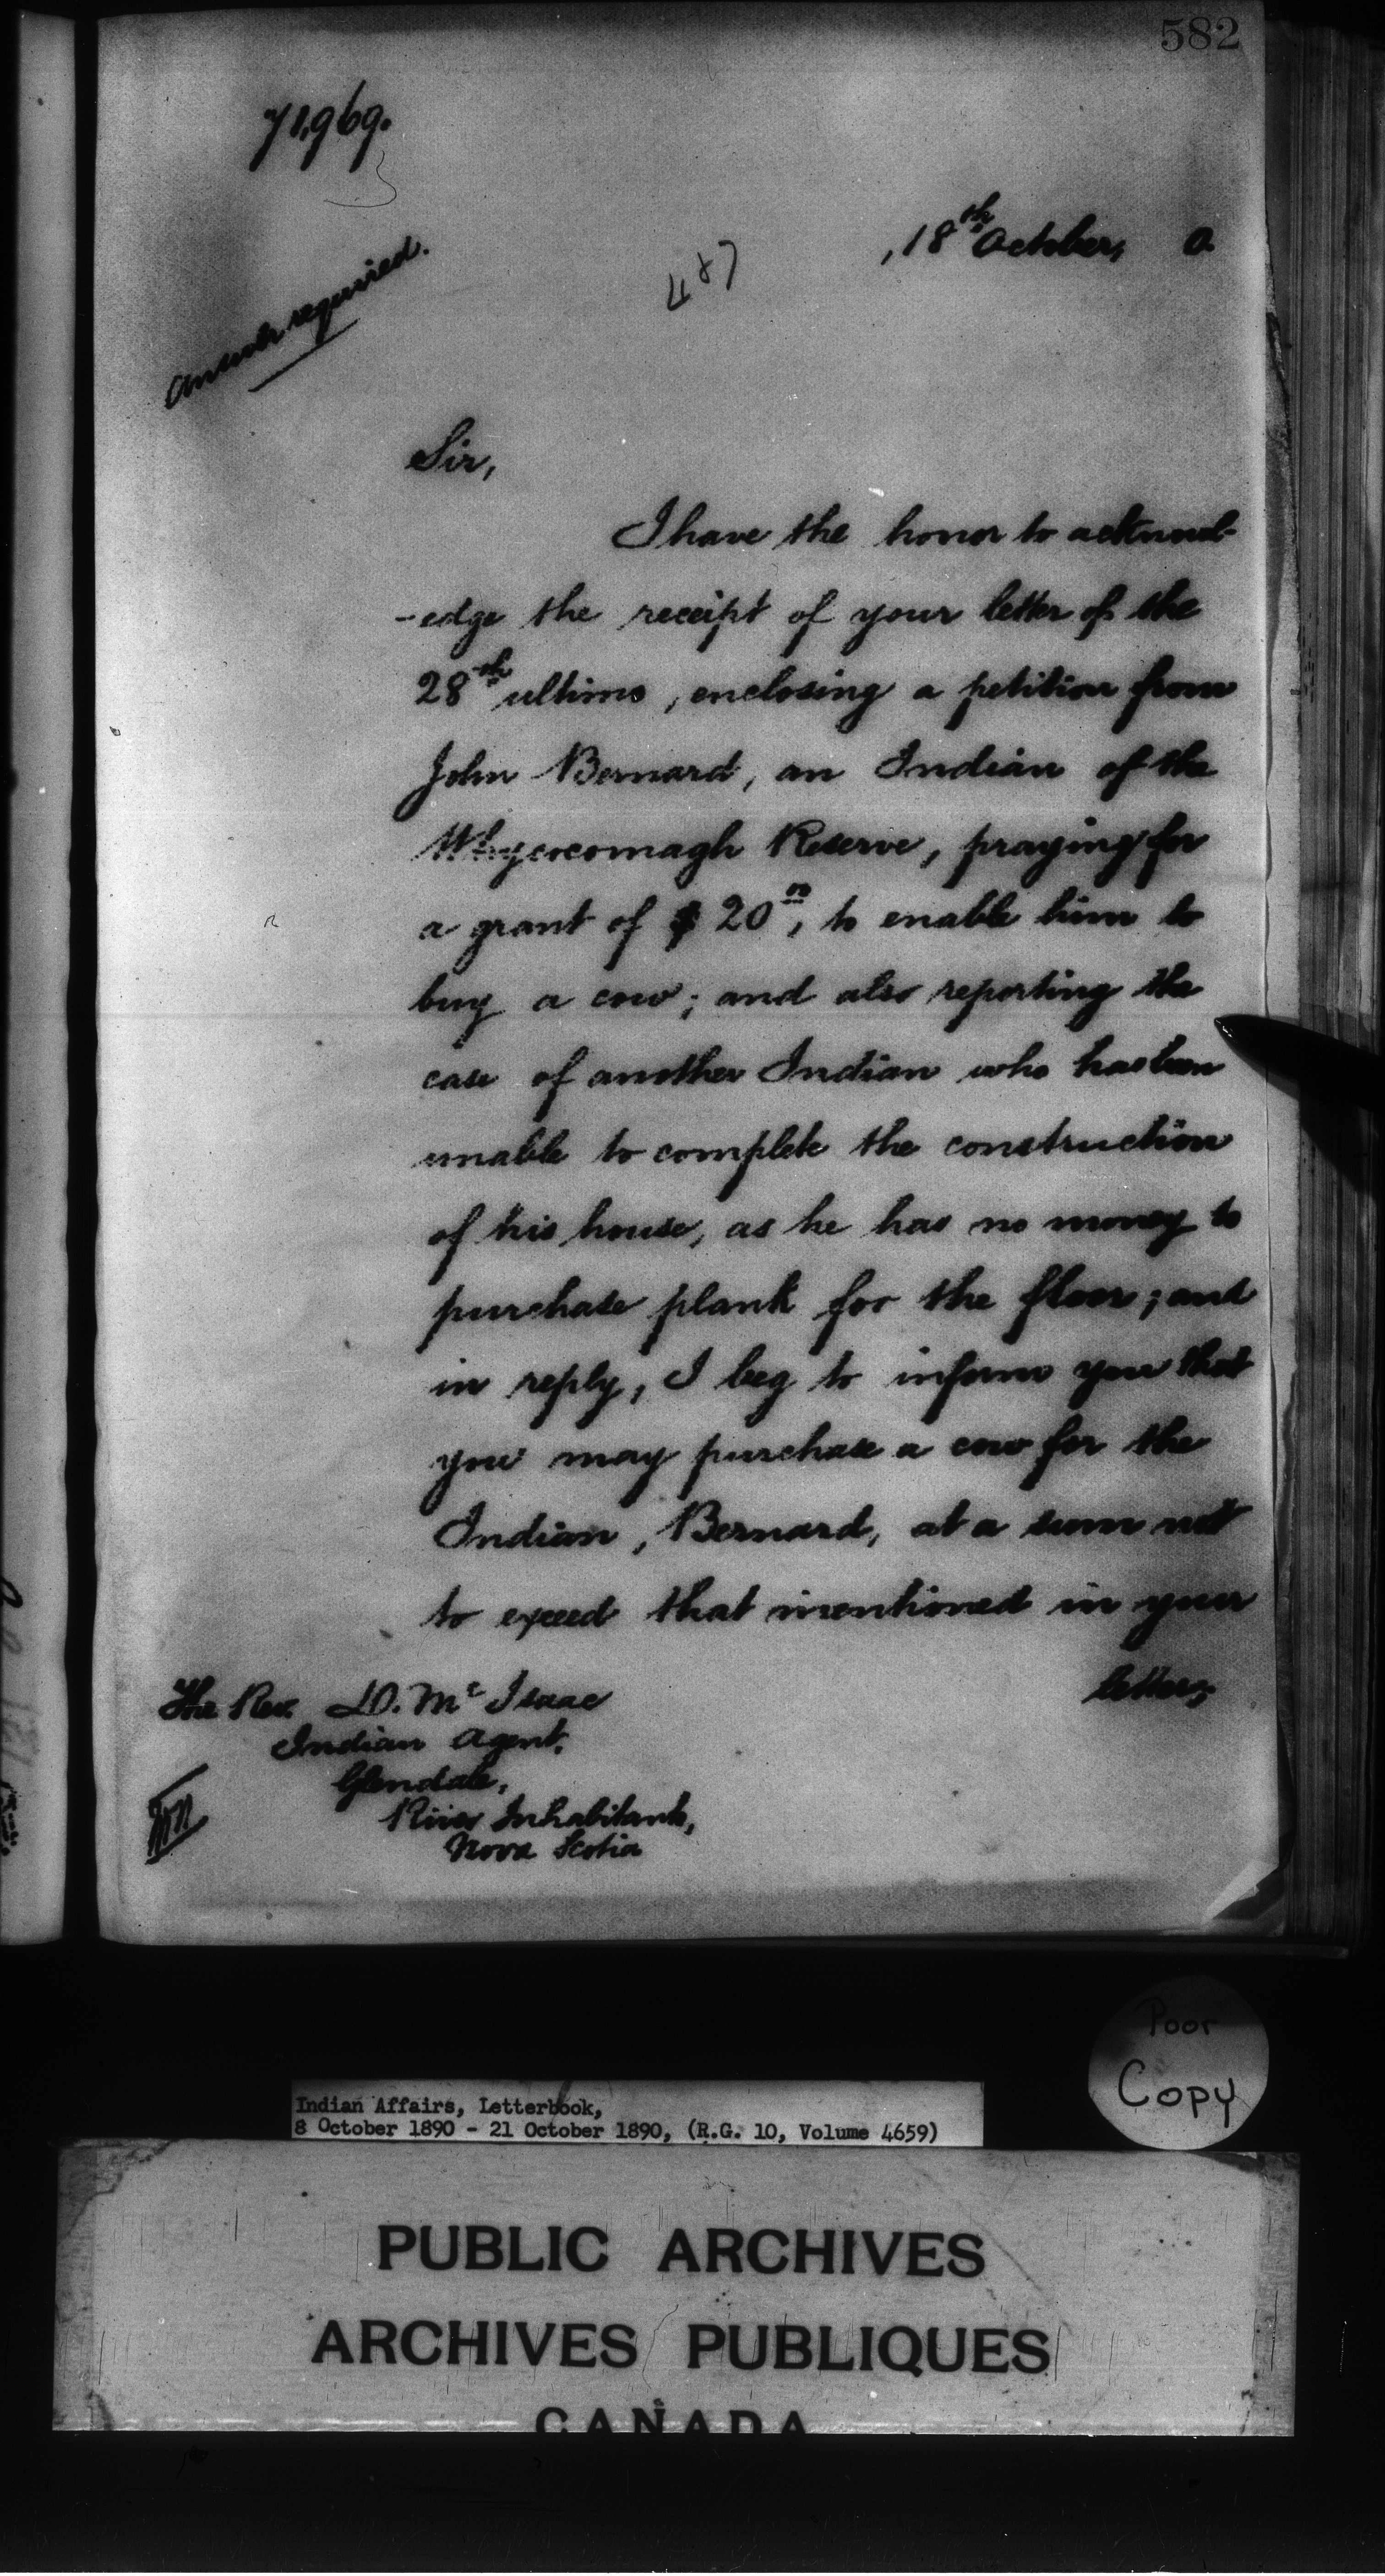 582
71,969.
, 18th October, 0
487
Answer required.
Sir,
I have the honor to acknowl-
-edge the receipt of your letter of the
28th ultimo, enclosing a petition from
John Bernard, an Indian of the
Whycocomagh Reserve, praying for
a grant of $20, to enable him to
buy a cow; and also reporting the
case of another Indian who has been
unable to complete the construction
of his house, as he has no money to
purchase plank for the floor; and
in reply, I beg to inform you that
you may purchase a cow for the
Indian, Bernard, at a sum not
to exceed that mentioned in your
letter;
The Rev. D. Mc Isaac
Indian Agent,
Glendale,
River Inhabitants,
Nova Scotia
Poor
Copy
Indian Affairs, Letterbook,
8 October 1890 - 21 October 1890, (R.G. 10, Volume 4659)
PUBLIC ARCHIVES
ARCHIVES PUBLIQUES
CANADA